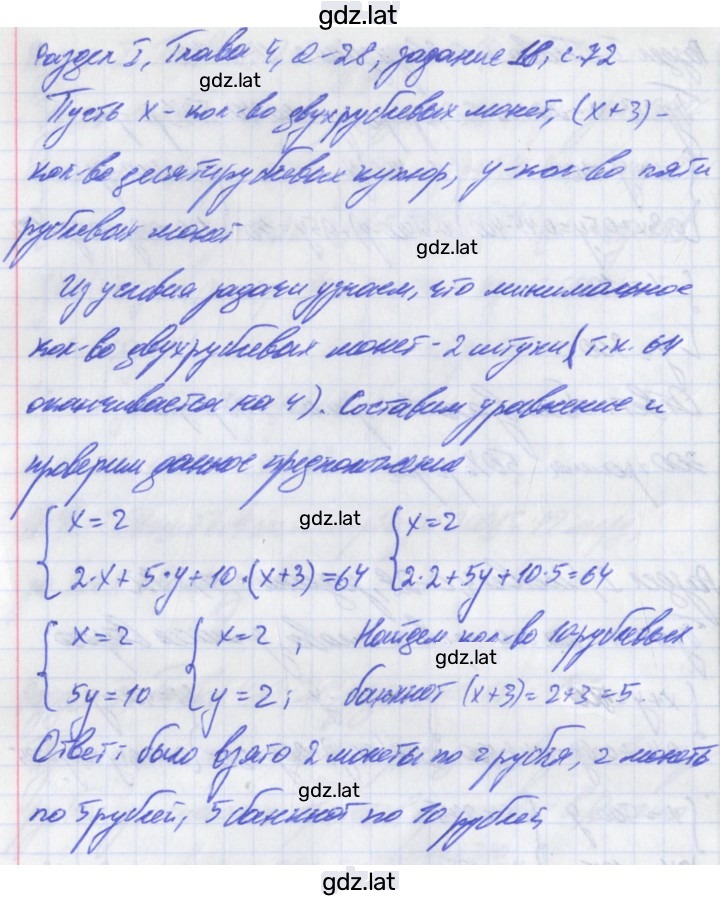 gdz.lat
Раздел I, Глава 4, О-28, задание 18, с.72
gdz.lat
Пусть x - кол-во двухрублевых монет, (x+3) -
кол-во десятирублевых купюр, y-кол-во пяти
рублевых монет
gdz.lat
Из условия задачи узнаем, что минимальное
кол-во двухрублевых монет - 2 штуки (т.к. 64
оканчивается на 4). Составим уравнение и
проверим данное предположение
gdz.lat
{ x=2 { x=2
2·x+5·y+10·(x+3)=64 2·2+5y+10·5=64
{ x=2 { x=2 ; Найдем кол-во 10-рублевых
gdz.lat
5y=10 y=2; банкнот (x+3)=2+3=5
Ответ: было взято 2 монеты по 2 рубля, 2 монеты
gdz.lat
по 5 рублей, 5 банкнот по 10 рублей
gdz.lat